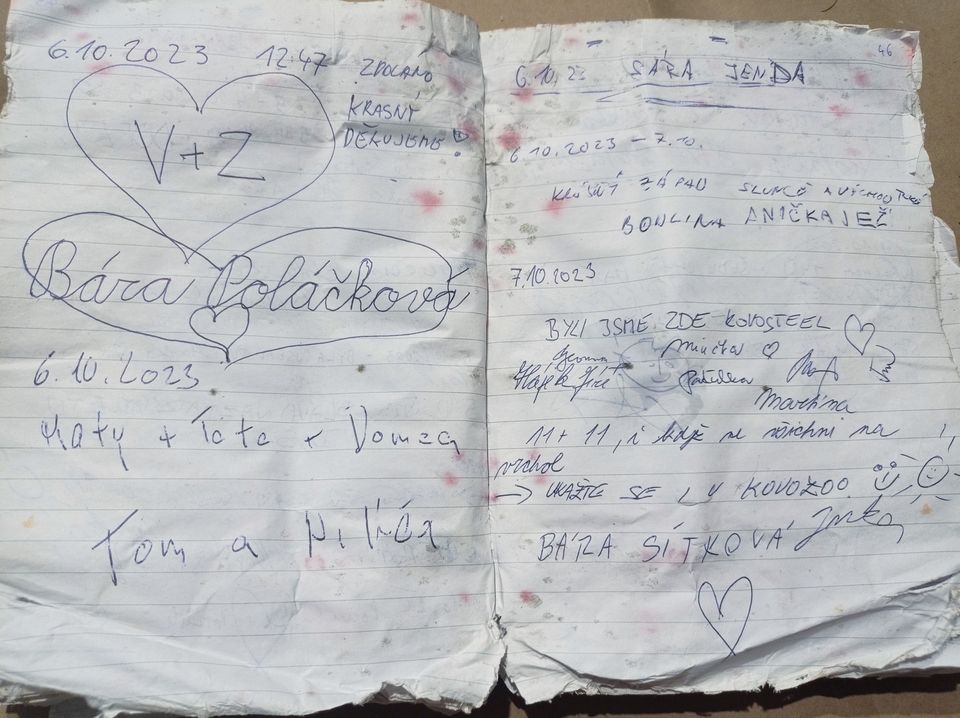 6.10.2023 12:47 ZDOLÁNO
KRASNÝ
DĚKUJEME!
V+Z
Bára Poláčková
6.10.2023
Maty + Tato +
Tom a
46
6.10.23 SÁRA JENDA
6.10.2023 – 7.10.
KRÁSNÝ ZÁPAD SLUNCE A VÝCHOD
ANIČKA JEŽ
7.10.2023
BYLI JSME ZDE KOVOSTEEL
Hájek Jiří
Martina
11+11, i když ne všichni na
vrchol
→ UKAŽTE SE I V KOVOZOO
BÁRA SÍTKOVÁ Jirka